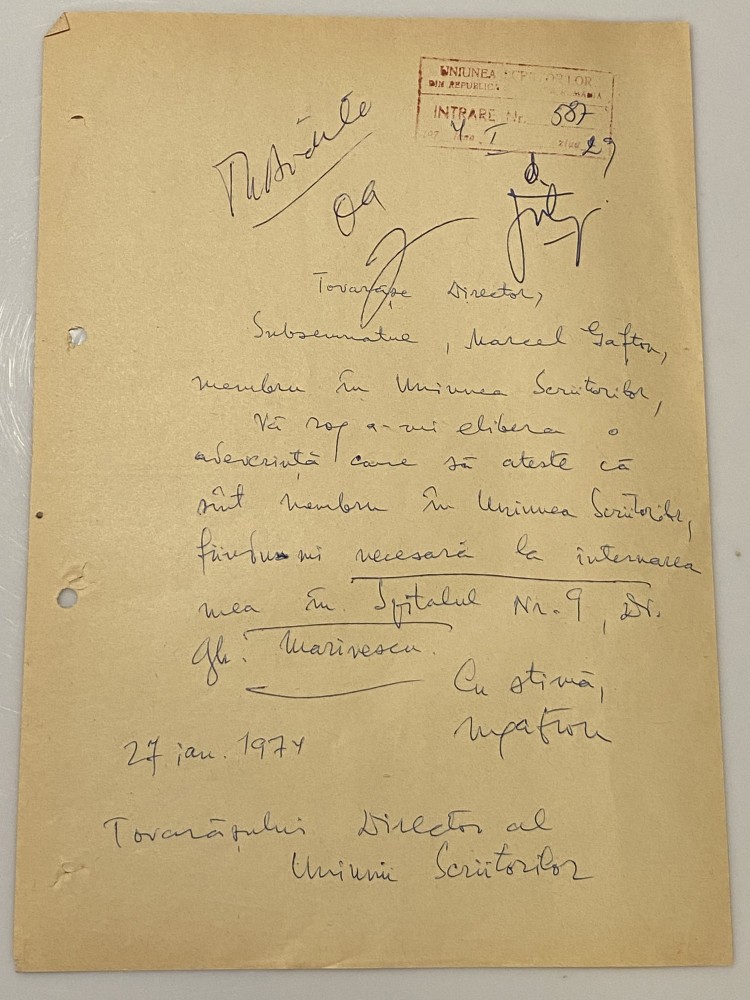 UNIUNEA SCRIITORILOR
DIN REPUBLICA ROMÂNIA
INTRARE Nr. 587
1974 luna I ziua 29
Da
Tovarășe Director,
Subsemnatul, Marcel Gafton,
membru în Uniunea Scriitorilor,
Vă rog a-mi elibera o
adeverință care să ateste că
sînt membru în Uniunea Scriitorilor,
fiindu-mi necesară la internarea
mea în Spitalul Nr. 9, Dr.
Gh. Marinescu.
Cu stimă,
MGafton
27 ian. 1974
Tovarășului Director al
Uniunii Scriitorilor